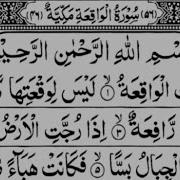 (٥٦) سُوْرَةُ الْوَاقِعَةِ مَكِّيَّةٌ (٣٦)
ـسْمِ اللّٰهِ الرَّحْمٰنِ الرَّحِيْـ
الْوَاقِعَةُ ۙ‏﴿۱﴾ لَيْسَ لِوَقْعَتِهَا
رَّافِعَةٌ ۙ‏﴿۳﴾ اِذَا رُجَّتِ الْاَرْضُ
الْجِبَالُ بَسًّا ۙ‏﴿۵﴾ فَكَانَتْ هَبَآءً